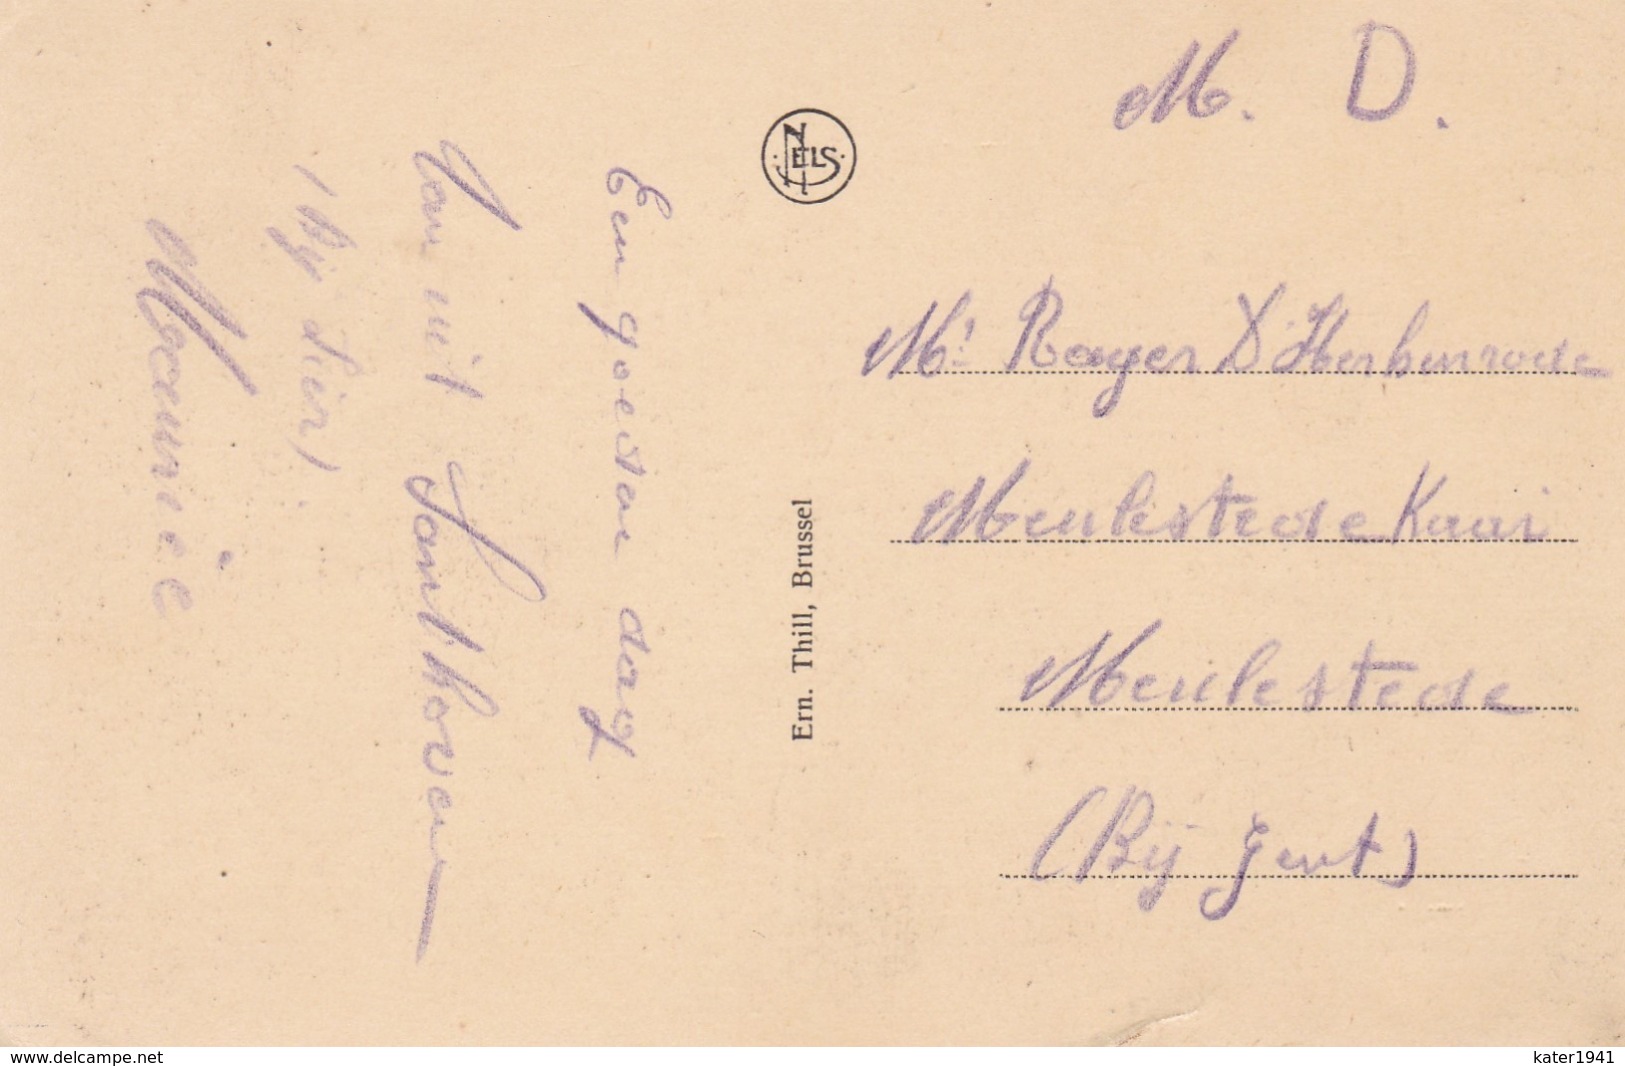 Een goeden dag
van uit Santhoven
(Bij Lier)
Maurice
NELS
Ern. Thill, Brussel
M. D.
Mr Roger D'Herbenrode
Meulestede Kaai
Meulestede
(Bij Gent)
www.delcampe.net
kater1941